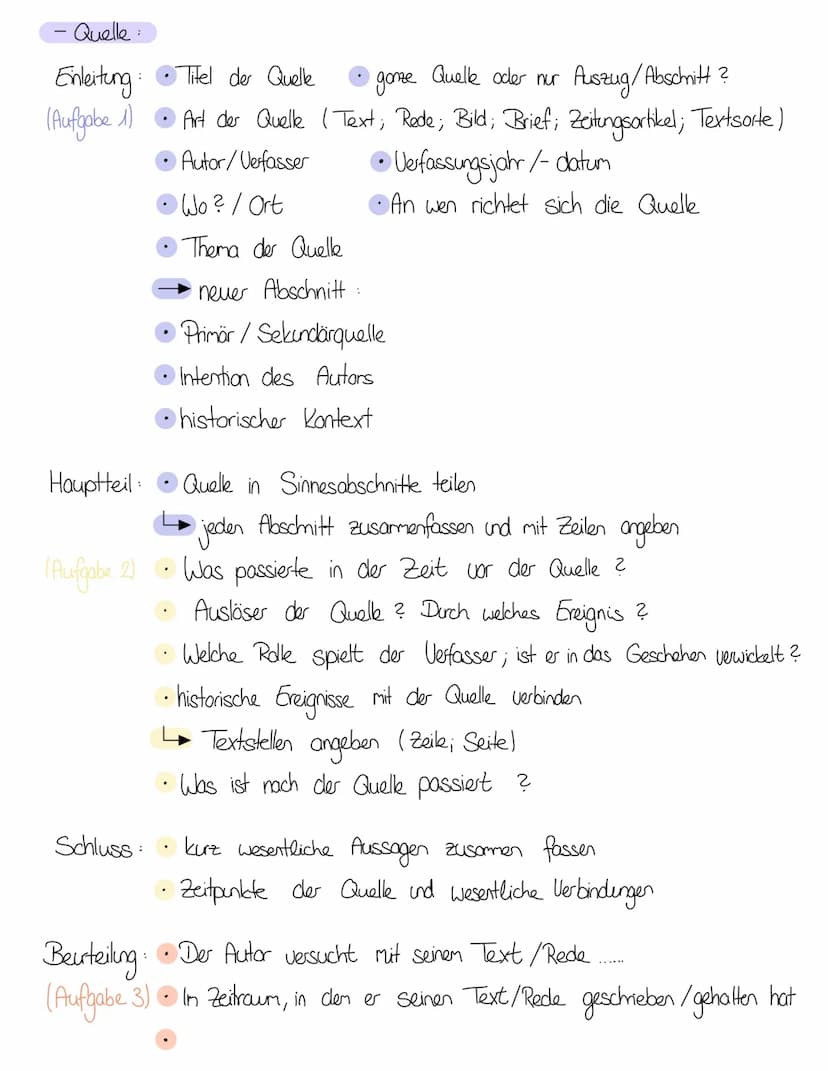 - Quelle :
Einleitung : • Titel der Quelle • ganze Quelle oder nur Auszug/Abschnitt ?
(Aufgabe 1) • Art der Quelle (Text; Rede; Bild; Brief; Zeitungsartikel; Textsorte)
• Autor/Verfasser • Verfassungsjahr/-datum
• Wo? / Ort • An wen richtet sich die Quelle
• Thema der Quelle
→ neuer Abschnitt :
• Primär / Sekundärquelle
• Intention des Autors
• historischer Kontext
Hauptteil : • Quelle in Sinnesabschnitte teilen
↳ jeden Abschnitt zusammenfassen und mit Zeilen angeben
(Aufgabe 2) • Was passierte in der Zeit vor der Quelle ?
• Auslöser der Quelle ? Durch welches Ereignis ?
• Welche Rolle spielt der Verfasser; ist er in das Geschehen verwickelt ?
• historische Ereignisse mit der Quelle verbinden
↳ Textstellen angeben (Zeile; Seite)
• Was ist nach der Quelle passiert ?
Schluss : • kurz wesentliche Aussagen zusammen fassen
• Zeitpunkte der Quelle und wesentliche Verbindungen
Beurteilung : • Der Autor versucht mit seinem Text /Rede ......
(Aufgabe 3) • Im Zeitraum, in dem er seinen Text/Rede geschrieben /gehalten hat
•